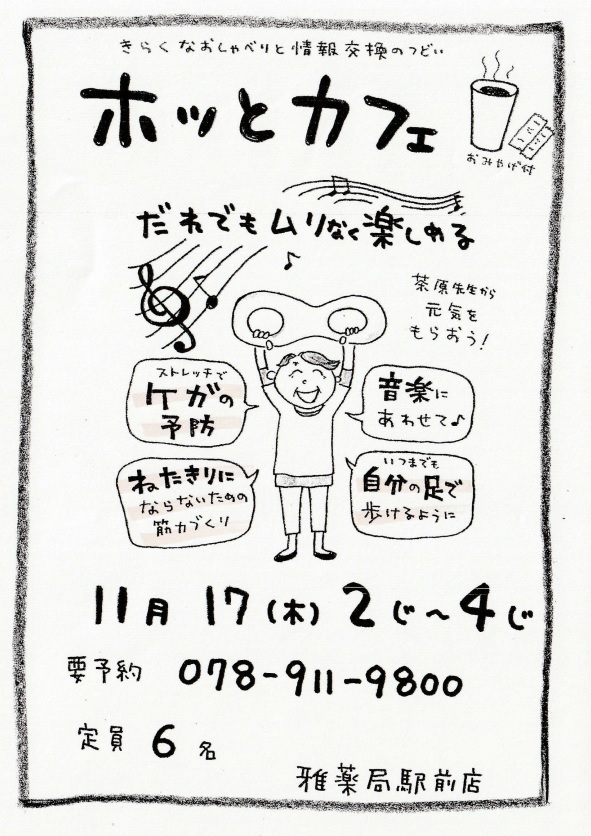 きらくなおしゃべりと情報交換のつどい
ホッとカフェ
おみやげ付
だれでもムリなく楽しめる
茶原先生から
元気を
もらおう!
ストレッチで
ケガの
予防
音楽に
あわせて♪
ねたきりに
ならないための
筋力づくり
いつまでも
自分の足で
歩けるように
11月 17(木) 2じ~4じ
要予約 078-911-9800
定員 6 名
雅薬局駅前店